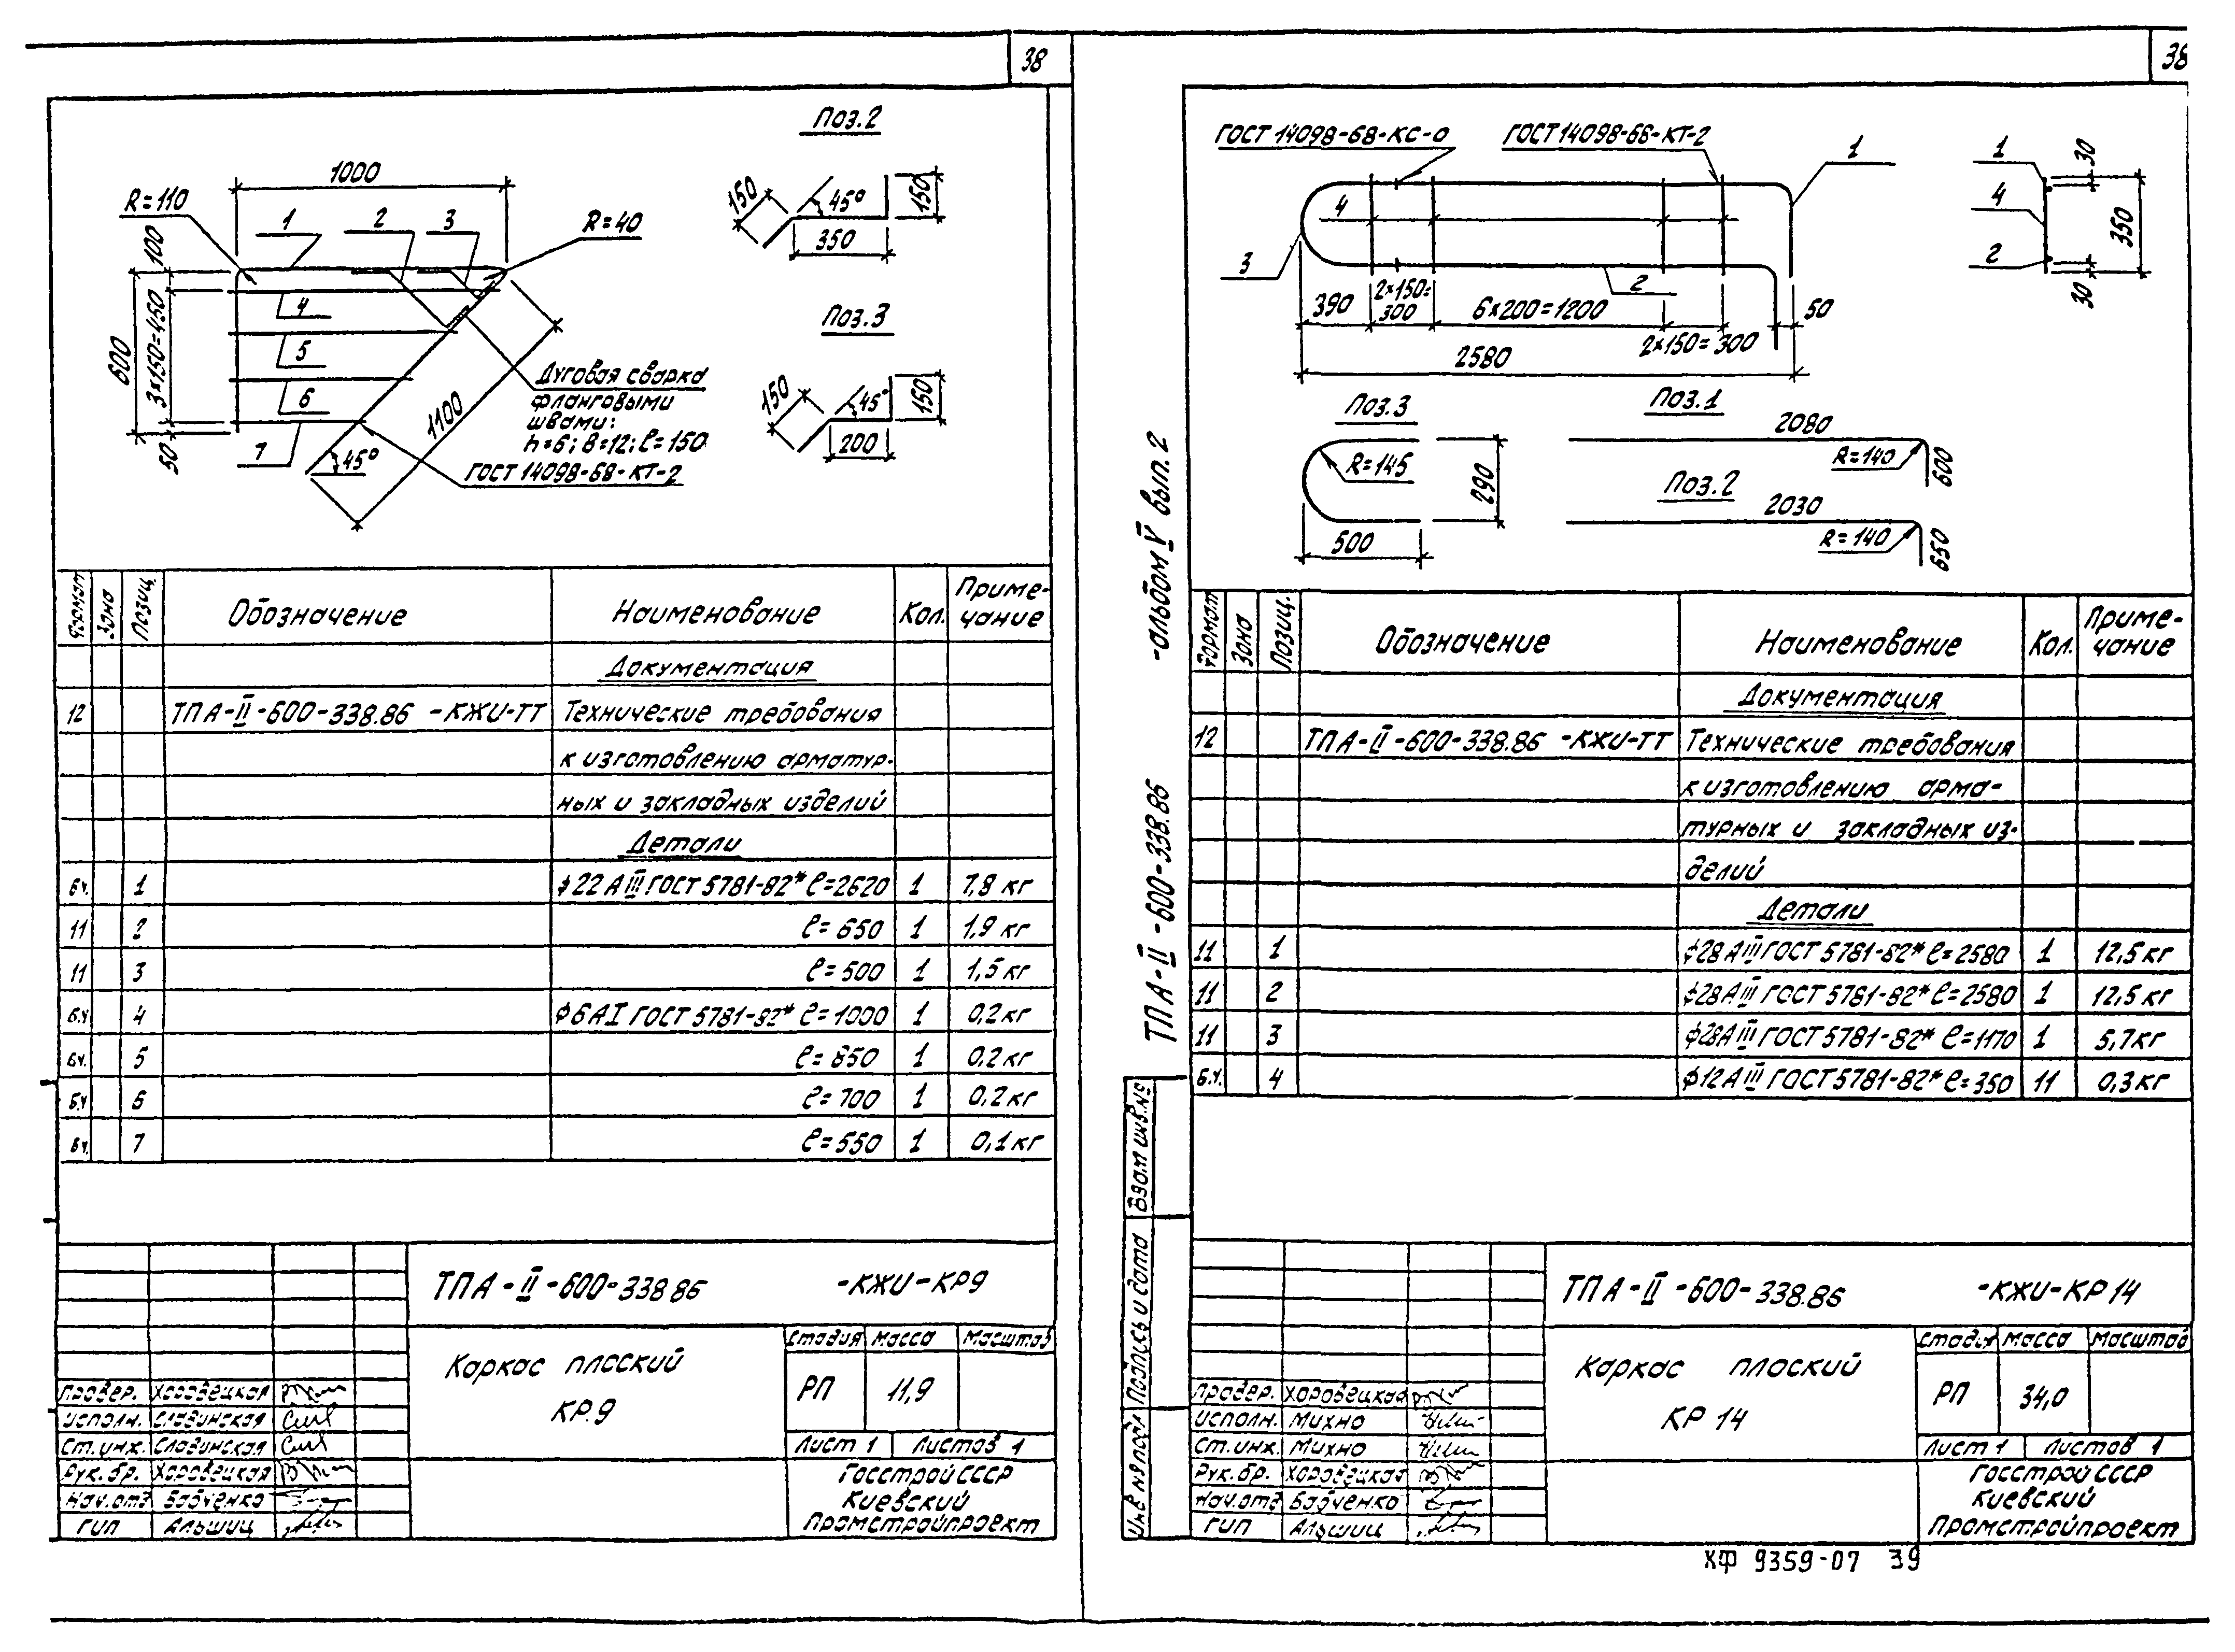 38
Поз.2
1000
R=110
1
2
3
R=40
150
45°
150
350
100
600
3×150=450
50
4
5
6
7
Поз.3
150
45°
150
200
1100
Дуговая сварка
фланговыми
швами:
h=6; в=12; ℓ=150
45°
ГОСТ 14098-68-КТ-2
Формат
Зона
Позиц.
Обозначение
Наименование
Кол.
Приме-
чание
Документация
12 ТП А-II-600-338.86 -КЖИ-ТТ Технические требования
к изготовлению арматур-
ных и закладных изделий
Детали
б.ч. 1 ϕ22 А III ГОСТ 5781-82* ℓ=2620 1 7,8 кг
11 2 ℓ=650 1 1,9 кг
11 3 ℓ=500 1 1,5 кг
б.ч 4 ϕ6 А I ГОСТ 5781-82* ℓ=1000 1 0,2 кг
б.ч. 5 ℓ=850 1 0,2 кг
б.ч 6 ℓ=700 1 0,2 кг
б.ч. 7 ℓ=550 1 0,1 кг
ТП А-II-600-338.86 -КЖИ-КР9
Каркас плоский
КР.9
Стадия Масса Масштаб
РП 11,9
Лист 1 Листов 1
Госстрой СССР
Киевский
Промстройпроект
Провер. Хоровецкая
Исполн. Славинская
Ст.инж. Славинская
Рук.бр. Хоровецкая
Нач.отд Бабченко
ГИП Альшиц
38
ГОСТ 14098-68-КС-о
ГОСТ 14098-68-КТ-2
1
4
3
2
390
2×150=
300
6×200=1200
2×150=300
50
2580
1
4
2
30
350
30
Поз.3
R=145
290
500
Поз.1
2080
R=140
600
Поз.2
2030
R=140
650
ТП А-II-600-338.86 -альбом V вып. 2
Формат
Зона
Позиц.
Обозначение
Наименование
Кол.
Приме-
чание
Документация
12 ТП А-II-600-338.86 -КЖИ-ТТ Технические требования
к изготовлению арма-
турных и закладных из-
делий
Детали
11 1 ϕ28 А III ГОСТ 5781-82* ℓ=2580 1 12,5 кг
11 2 ϕ28 А III ГОСТ 5781-82* ℓ=2580 1 12,5 кг
11 3 ϕ28 А III ГОСТ 5781-82* ℓ=1170 1 5,7 кг
б.ч. 4 ϕ12 А III ГОСТ 5781-82* ℓ=350 11 0,3 кг
Взам инв.№
Подпись и дата
Инв № подл
ТП А-II-600-338.86 -КЖИ-КР 14
Каркас плоский
КР 14
Стадия Масса Масштаб
РП 34,0
Лист 1 Листов 1
Госстрой СССР
Киевский
Промстройпроект
Провер. Хоровецкая
Исполн. Михно
Ст.инж. Михно
Рук.бр. Хоровецкая
Нач.отд Бабченко
ГИП Альшиц
КФ 9359-07 39